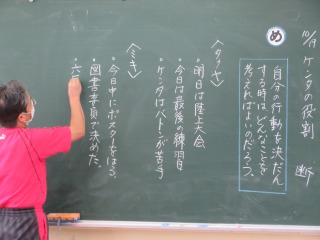 10/19 ケンタの役割
め
自分の行動を決だん
する時は、どんなことを
考えればよいのだろう。
<タツヤ>
・明日は陸上大会
・今日は最後の練習日
・ケンタはバトンが苦手
<ミキ>
・今日中にポスターをはる。
・図書委員で決めた。
・六